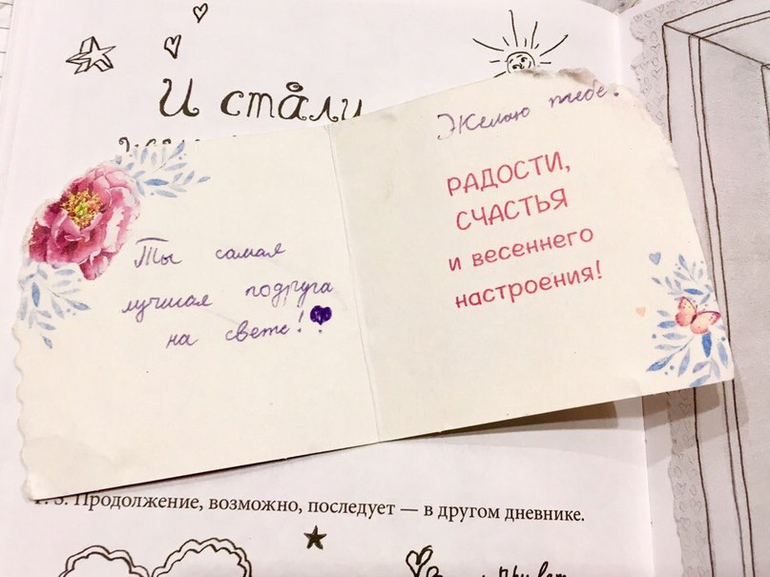 И стали
Ты самая
лучшая подруга
на свете!
Желаю тебе:
РАДОСТИ,
СЧАСТЬЯ
и весеннего
настроения!
P. S. Продолжение, возможно, последует — в другом дневнике.